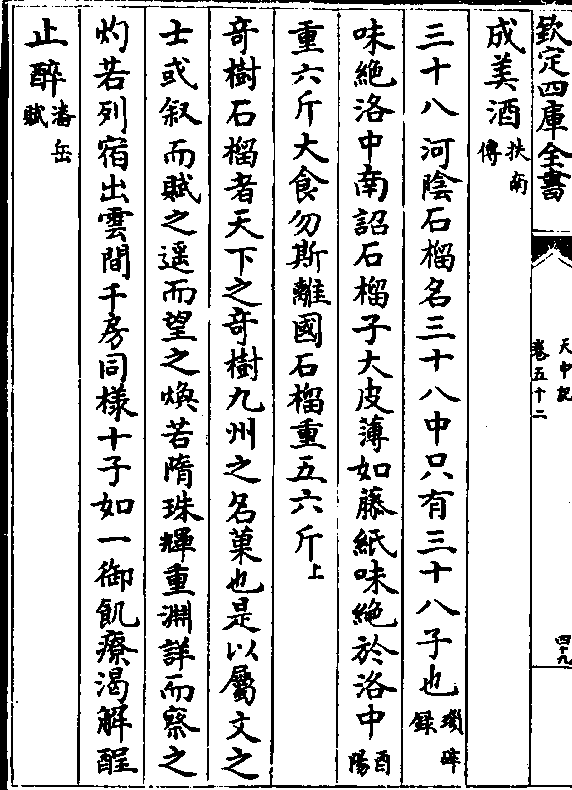 欽定四庫全書
天中記
卷五十二
四十九
成美酒扶南傳
三十八 河陰石榴名三十八中只有三十八子也瑣碎録
味絶洛中南詔石榴子大皮薄如藤紙味絶於洛中酉陽
重六斤大食勿斯離國石榴重五六斤上
奇樹石榴者天下之奇樹九州之名菓也是以屬文之
士或叙而賦之遥而望之煥若隋珠輝重淵詳而察之
灼若列宿出雲間千房同様十子如一御飢療渴解酲
止醉潘岳賦